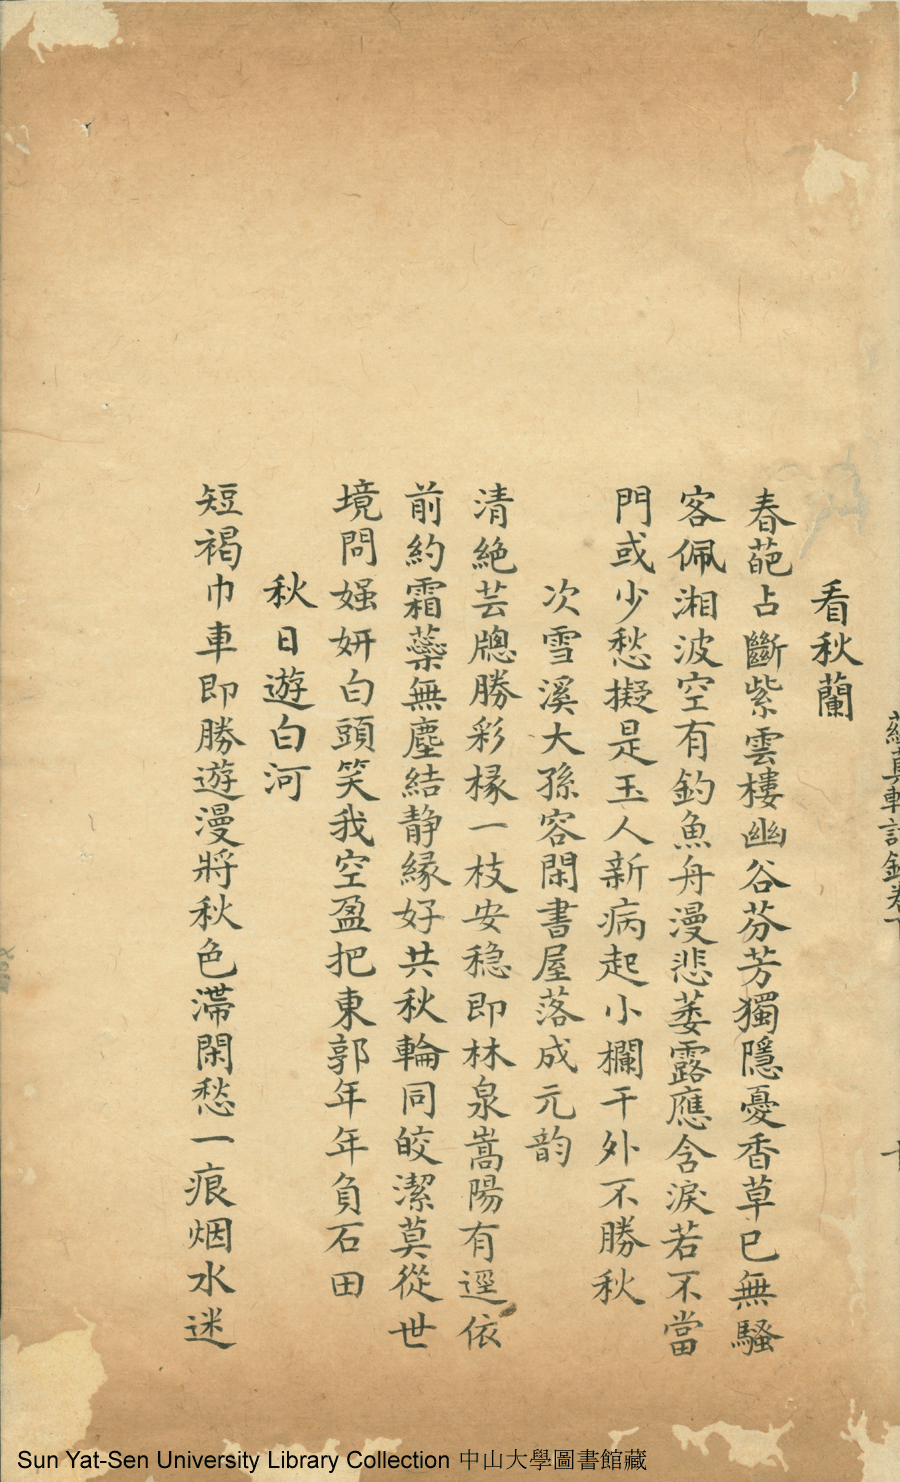 看秋蘭
春葩占斷紫雲樓幽谷芬芳獨隱憂香草已無騷
客佩湘波空有釣魚舟漫悲萎露應含淚若不當
門或少愁擬是玉人新病起小欄干外不勝秋
次雪溪大孫容閑書屋落成元韵
清絶芸牕勝彩椽一枝安穏即林泉嵩陽有逕依
前約霜蘂無塵結静緣好共秋輪同皎潔莫從世
境問媸妍白頭笑我空盈把東郭年年負石田
秋日遊白河
短褐巾車即勝遊漫將秋色滯閑愁一痕烟水迷
Sun Yat-Sen University Library Collection 中山大學圖書館藏